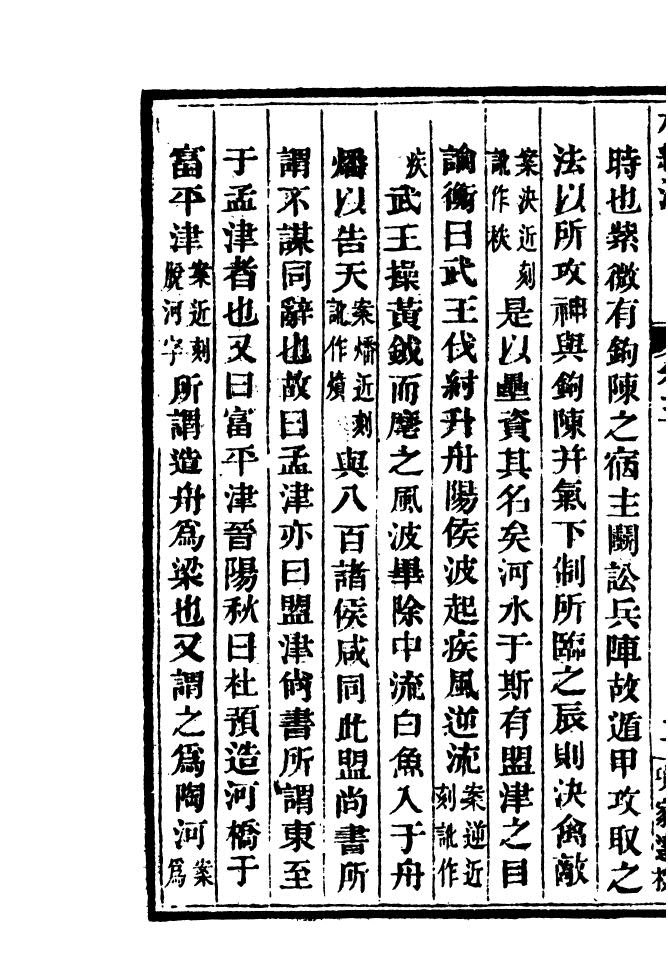 時也紫微有鉤陳之宿主鬭訟兵陣故遁甲攻取之
法以所攻神與鉤陳并氣下制所臨之辰則決禽敵
案決近刻訛作秩是以壘資其名矣河水于斯有盟津之目
論衡曰武王伐紂升舟陽侯波起疾風逆流案逆近刻訛作
疾武王操黃鉞而麾之風波畢除中流白魚入于舟
燔以告天案燔近刻訛作燌與八百諸侯咸同此盟尚書所
謂不謀同辭也故曰孟津亦曰盟津尚書所謂東至
于孟津者也又曰富平津晉陽秋曰杜預造河橋于
富平津案近刻脫河字所謂造舟爲梁也又謂之爲陶河案爲